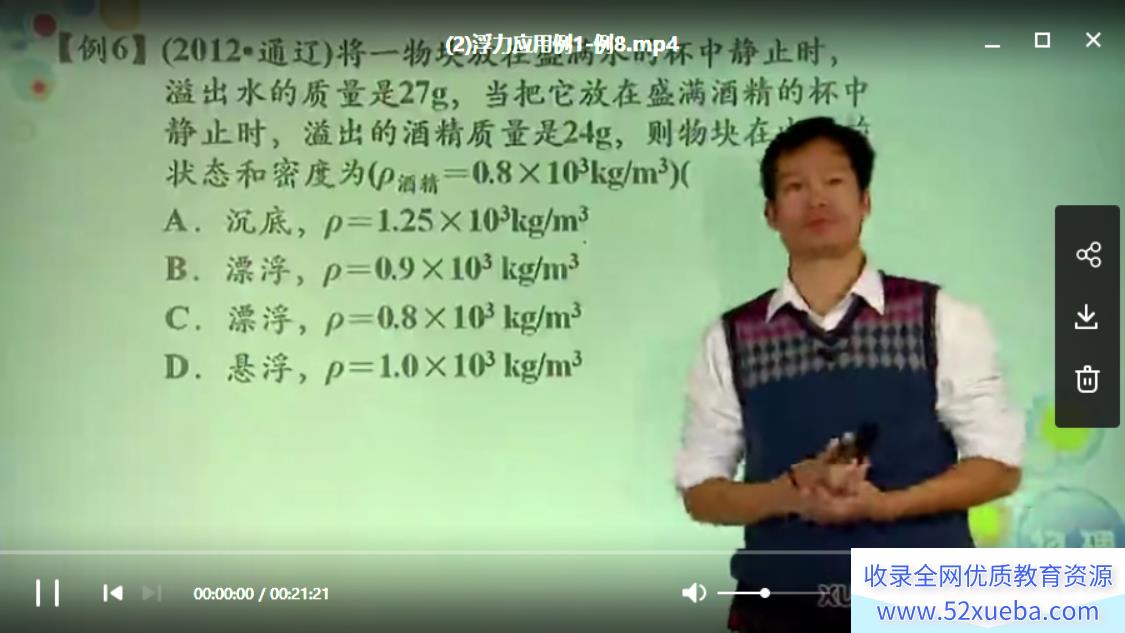 (2)浮力应用例1-例8.mp4
【例6】(2012•通辽)将一物块放在盛满水的杯中静止时,
溢出水的质量是27g, 当把它放在盛满酒精的杯中
静止时, 溢出的酒精质量是24g, 则物块在
状态和密度为(ρ酒精=0.8×10³kg/m³)(
A. 沉底, ρ=1.25×10³kg/m³
B. 漂浮, ρ=0.9×10³ kg/m³
C. 漂浮, ρ=0.8×10³ kg/m³
D. 悬浮, ρ=1.0×10³ kg/m³
物理
00:00:00 / 00:21:21
XU
收录全网优质教育资源
www.52xueba.com